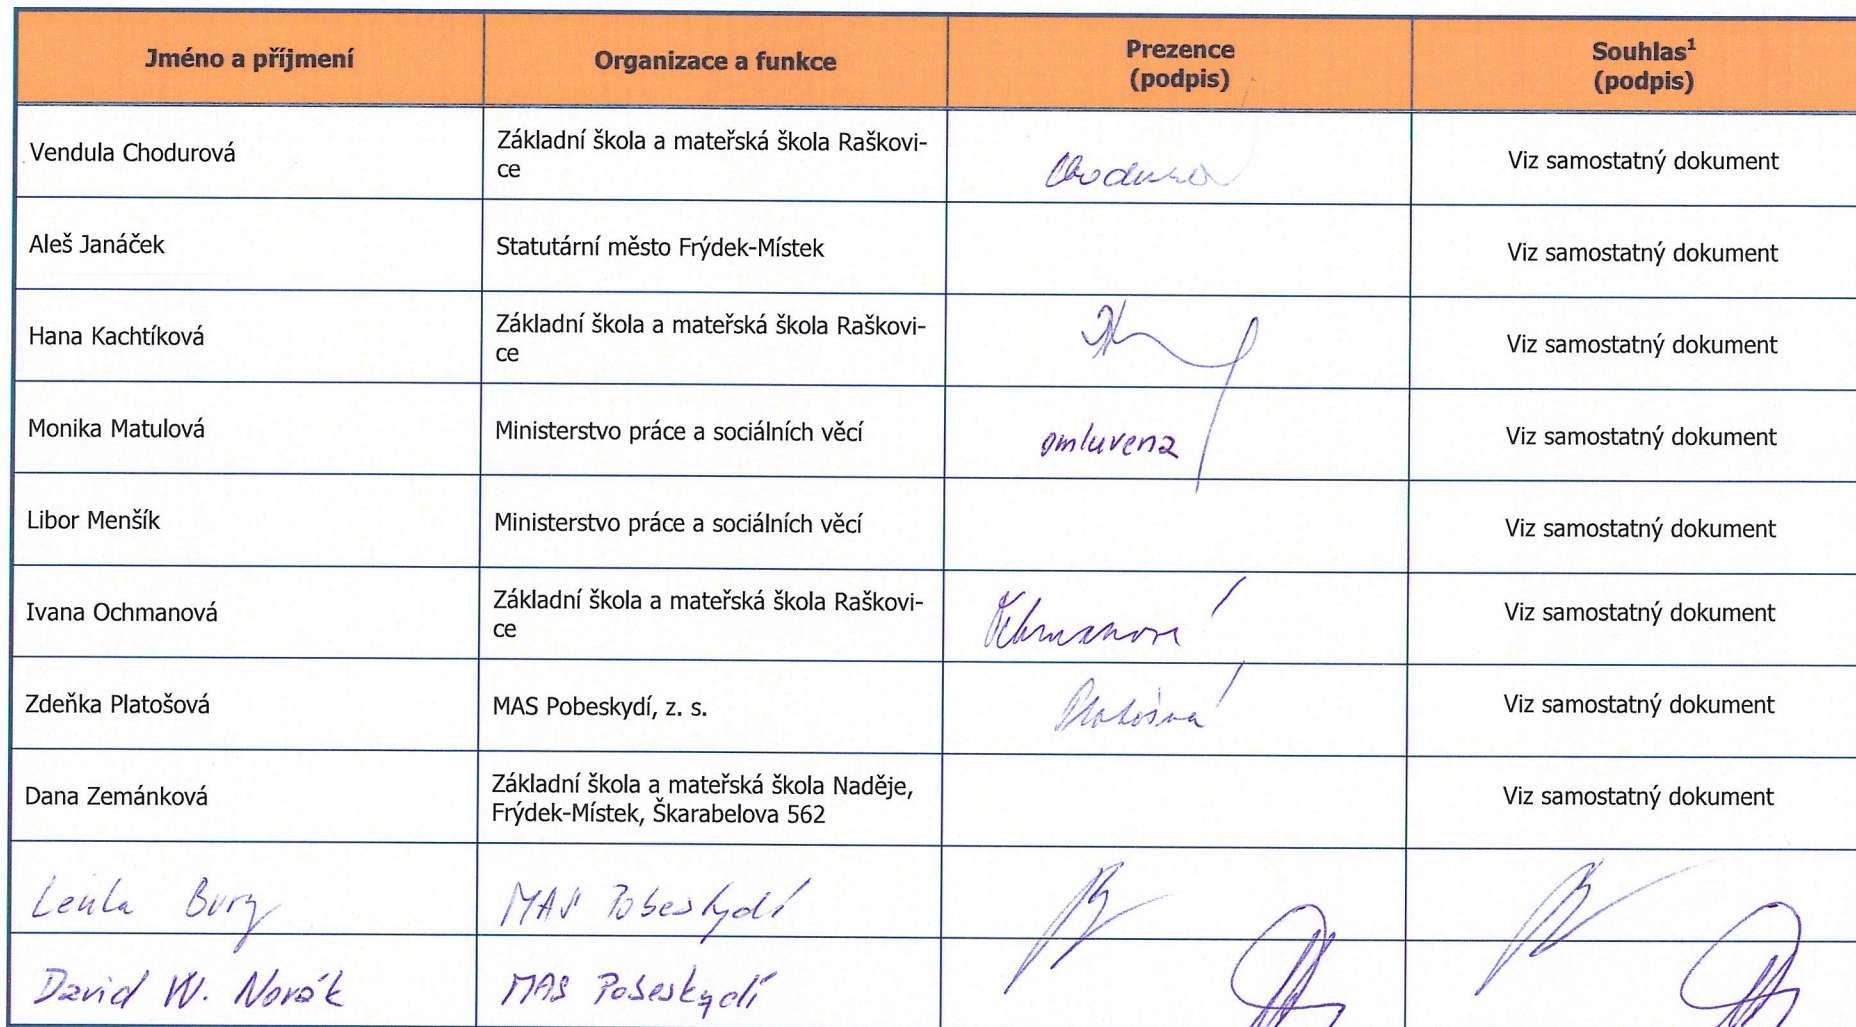 Jméno a příjmení Organizace a funkce Prezence Souhlas¹
(podpis) (podpis)
Vendula Chodurová Základní škola a mateřská škola Raškovi-
ce Viz samostatný dokument
Aleš Janáček Statutární město Frýdek-Místek Viz samostatný dokument
Hana Kachtíková Základní škola a mateřská škola Raškovi-
ce Viz samostatný dokument
Monika Matulová Ministerstvo práce a sociálních věcí omluvena Viz samostatný dokument
Libor Menšík Ministerstvo práce a sociálních věcí Viz samostatný dokument
Ivana Ochmanová Základní škola a mateřská škola Raškovi-
ce Ochmanová Viz samostatný dokument
Zdeňka Platošová MAS Pobeskydí, z. s. Platošová Viz samostatný dokument
Dana Zemánková Základní škola a mateřská škola Naděje,
Frýdek-Místek, Škarabelova 562 Viz samostatný dokument
Lenka MAS Pobeskydí
David W. Novák MAS Pobeskydí